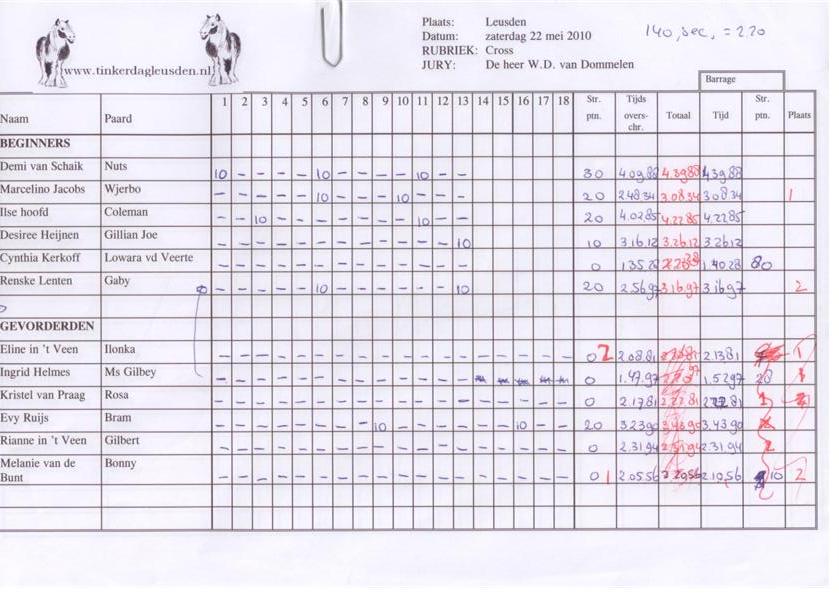 Plaats: Leusden
Datum: zaterdag 22 mei 2010
RUBRIEK: Cross
JURY: De heer W.D. van Dommelen
140, sec, = 2.20
www.tinkerdagleusden.nl
Barrage
Naam Paard 1 2 3 4 5 6 7 8 9 10 11 12 13 14 15 16 17 18 Str. ptn. Tijds overs- chr. Totaal Tijd Str. ptn. Plaats
BEGINNERS
Demi van Schaik Nuts 10 - - - - 10 - - - - 10 - - 30 4.09.88 4.39.88 4.39.88
Marcelino Jacobs Wjerbo - - - - - 10 - - - 10 - - - 20 2.48.34 3.08.34 3.08.34 1
Ilse hoofd Coleman - - 10 - - - - - - - 10 - - 20 4.02.85 4.22.85 4.22.85
Desiree Heijnen Gillian Joe - - - - - - - - - - - - 10 10 3.16.12 3.26.12 3.26.12
Cynthia Kerkoff Lowara vd Veerte - - - - - - - - - - - - - 0 1.35.28 1.40.28 80
Renske Lenten Gaby - - - - - 10 - - - - - - 10 20 2.56.97 3.16.97 3.16.97 2
GEVORDERDEN
Eline in 't Veen Ilonka - - - - - - - - - - - - - - - - - - 0 2 2.08.81 2.13.81 1
Ingrid Helmes Ms Gilbey - - - - - - - - - - - - - 0 1.47.97 1.52.97 28
Kristel van Praag Rosa - - - - - - - - - - - - - - - - - - 0 2.17.81 2.22.81 1
Evy Ruijs Bram - - - - - - - - 10 - - - - - - 10 - - 20 3.23.90 3.43.90 3.43.90
Rianne in 't Veen Gilbert - - - - - - - - - - - - - - - - - - 0 2.31.94 2.31.94 2.31.94 2
Melanie van de Bunt Bonny - - - - - - - - - - - - - - - - - - 0 1 2.05.56 2.10.56 10 2